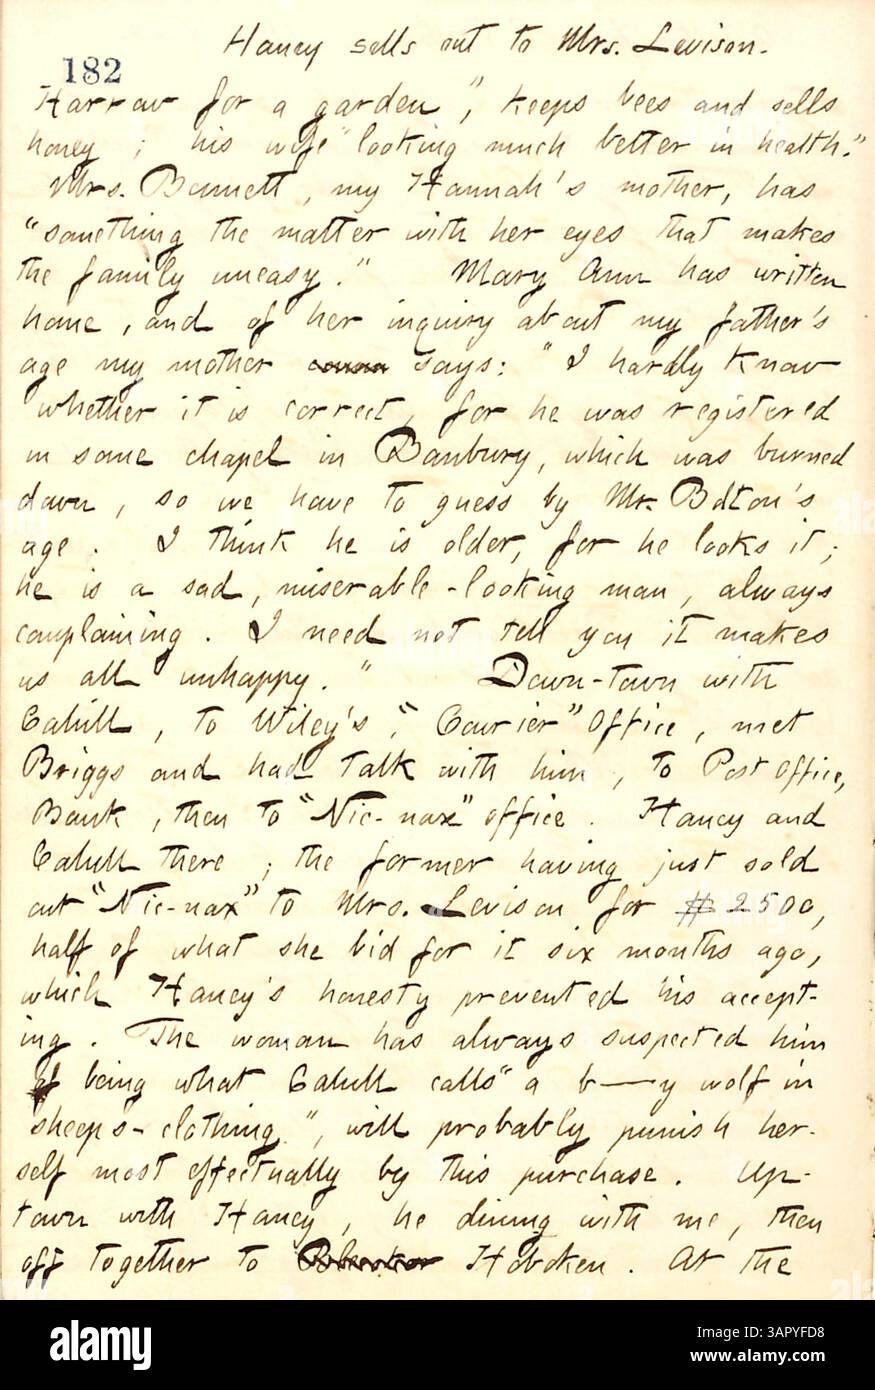 Haney sells out to Mrs. Levison.
182
Harrow for a garden", keeps bees and sells
honey ; his wife "looking much better in health."
Mrs. Bennett, my Hannah's mother, has
"something the matter with her eyes that makes
the family uneasy." Mary Ann has written
home, and of her inquiry about my father's
age my mother says: "I hardly know
whether it is correct, for he was registered
in some chapel in Banbury, which was burned
down, so we have to guess by Mr. Bolton's
age. I think he is older, for he looks it;
he is a sad, miserable-looking man, always
complaining. I need not tell you it makes
us all unhappy." Down-town with
Cahill, to Wiley's, "Courier" Office, met
Briggs and had talk with him, to Post Office,
Bank, then to "Nic-nax" office. Haney and
Cahill there; the former having just sold
out "Nic-nax" to Mrs. Levison for $2500,
half of what she bid for it six months ago,
which Haney's honesty prevented his accept-
ing. The woman has always suspected him
of being what Cahill calls "a b——y wolf in
sheep's-clothing", will probably punish her-
self most effectually by this purchase. Up-
town with Haney, he dining with me, then
off together to Hoboken. At the
alamy
Image ID: 3APYFD8
www.alamy.com